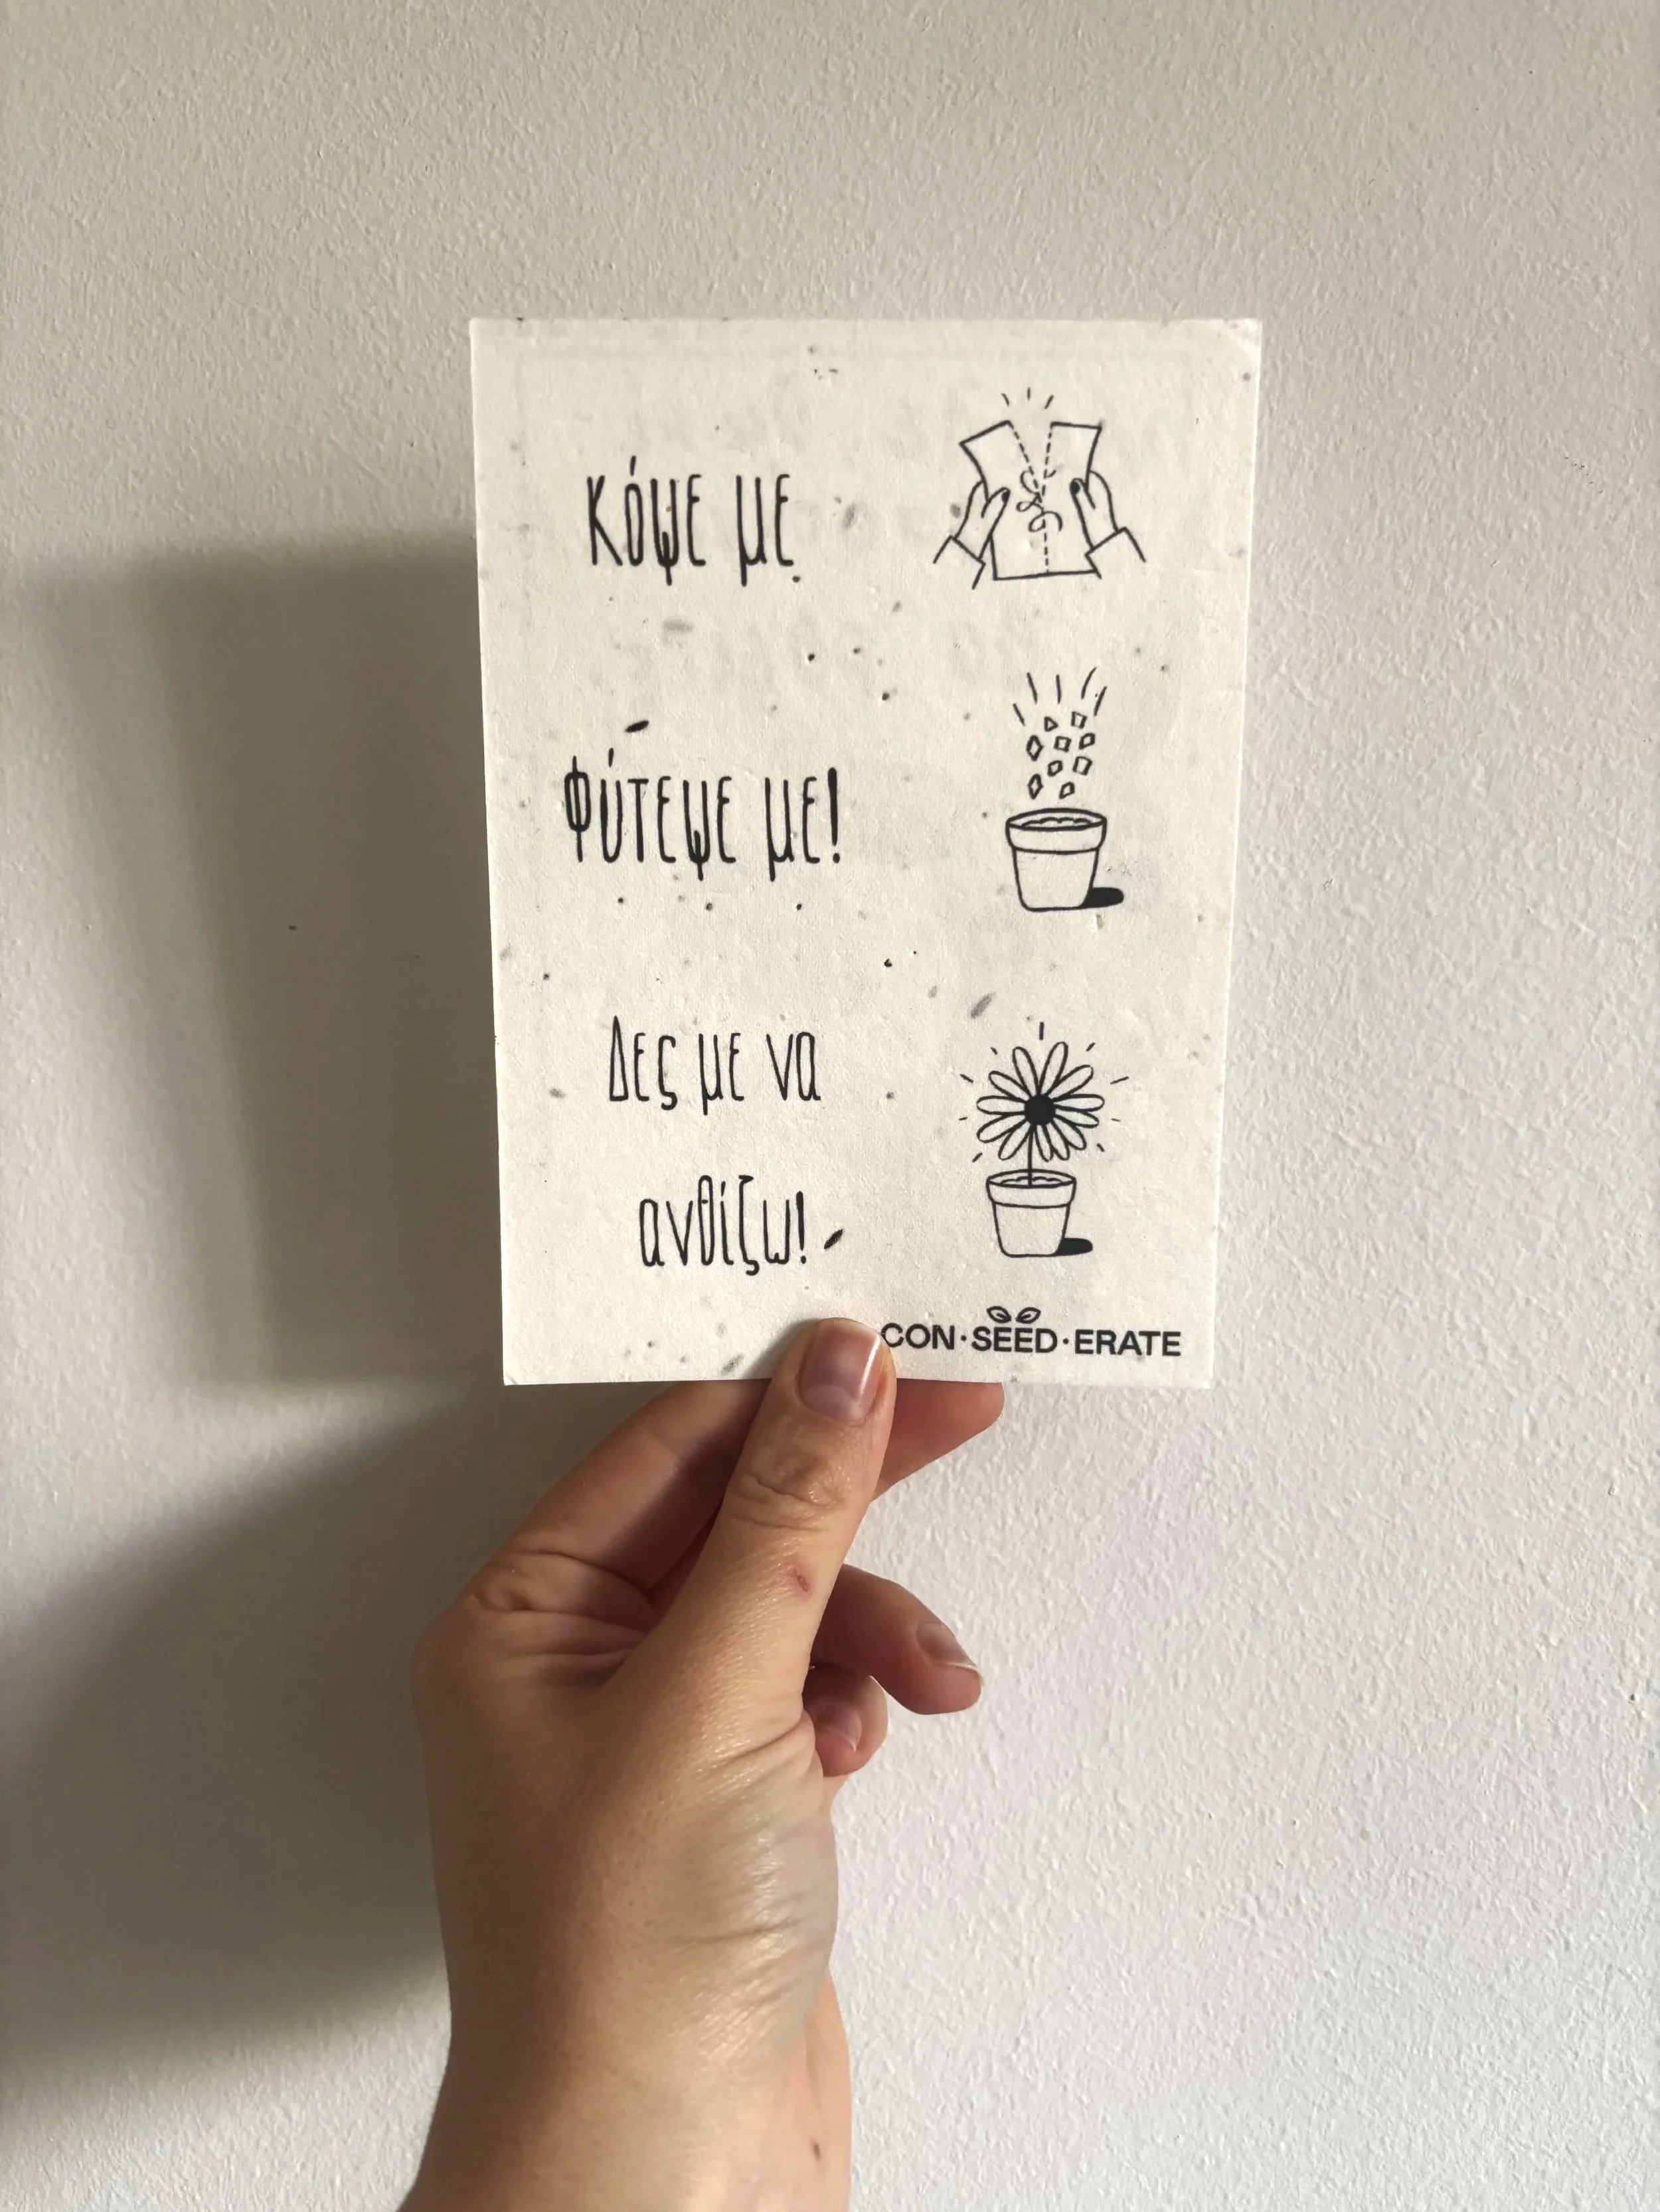 Κόψε με
Φύτεψε με!
Δες με να
ανθίζω!
CON·SEED·ERATE